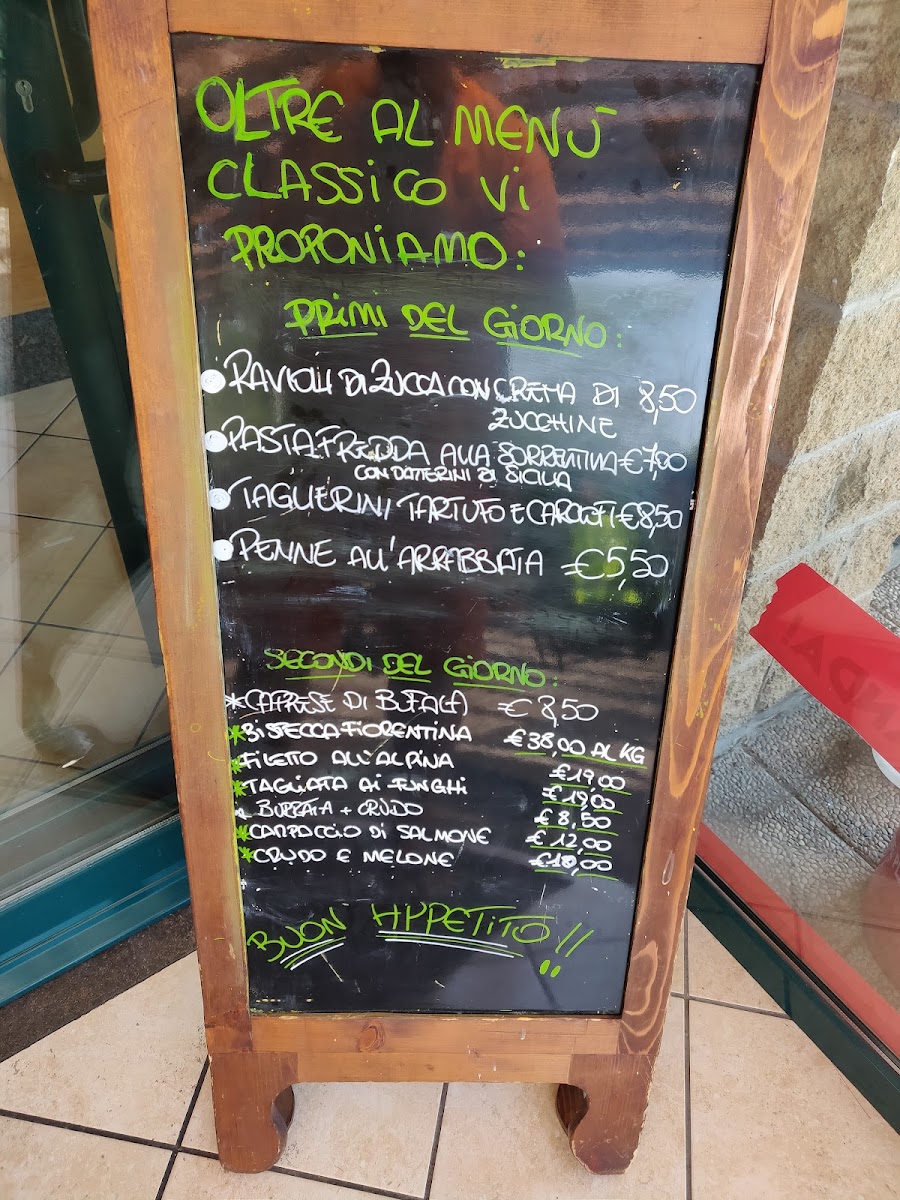 OLTRE AL MENÙ
CLASSICO Vi
PROPONIAMO:
PRIMI DEL GIORNO:
RAVIOLI DI ZUCCA CON CREMA DI 8,50
ZUCCHINE
PASTA FREDDA ALLA SORRENTINA €7,00
CON DATTERINI DI SICILIA
TAGLIERINI TARTUFO E CARCIOFI €8,50
PENNE ALL'ARRABBIATA €5,50
SECONDI DEL GIORNO:
*CAPRESE DI BUFALA € 8,50
*BISTECCA FIORENTINA €38,00 AL KG
*FILETTO ALL'ALPINA €19,00
*TAGLIATA AI FUNGHI €19,00
BURRATA + CRUDO €8,50
*CARPACCIO DI SALMONE €12,00
*CRUDO E MELONE €10,00
BUON APPETITO!!